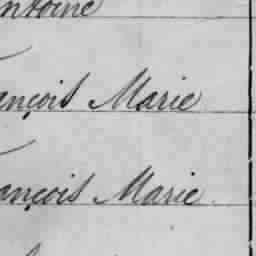 ntoine
ançois Marie
ançois Marie